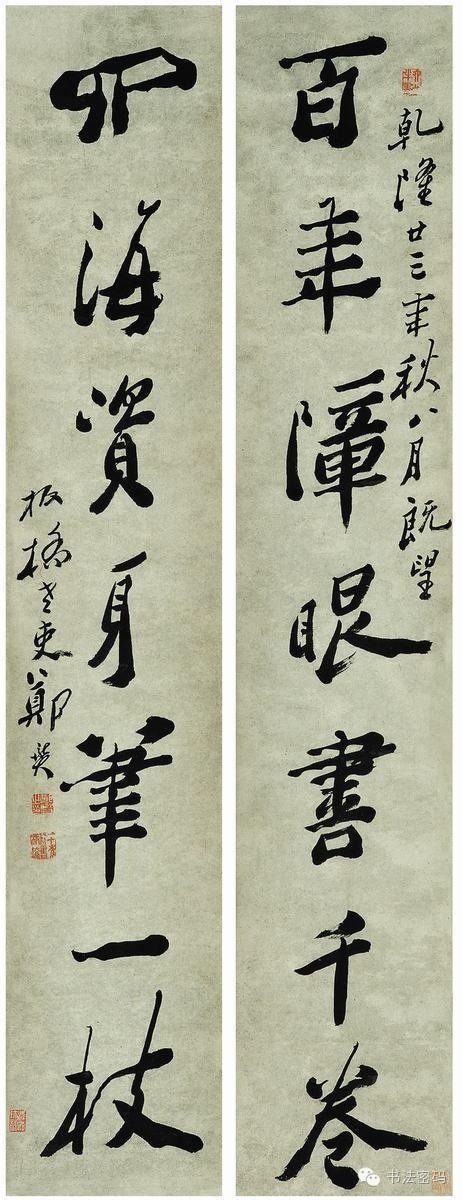 百年障眼書千卷
乾隆廿三年秋八月既望
四海資身筆一枝
板橋老吏鄭燮
书法密码